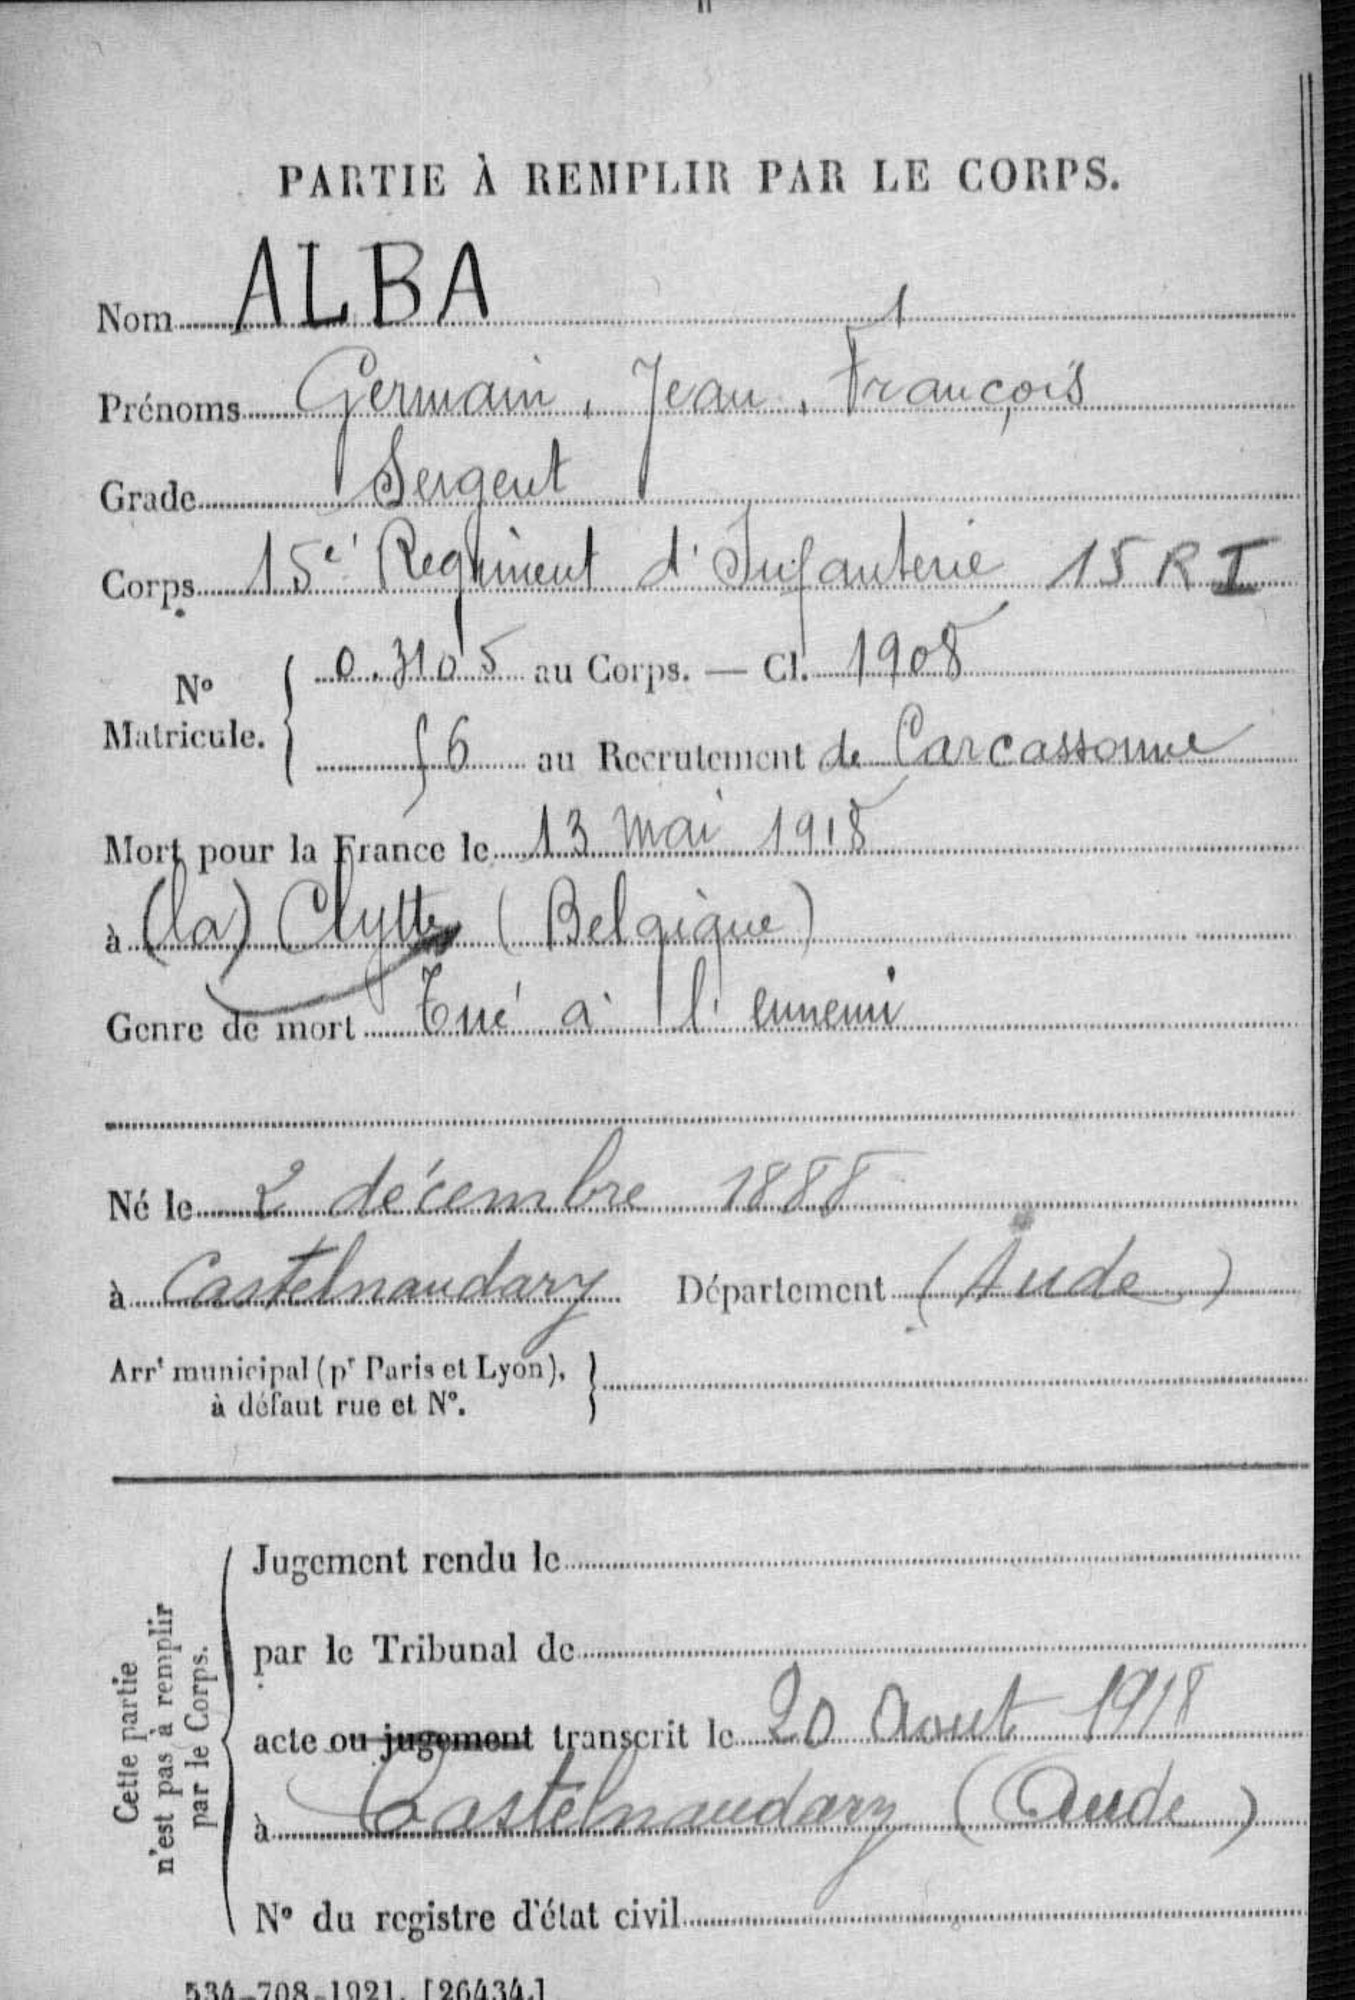 PARTIE À REMPLIR PAR LE CORPS.
Nom ALBA
Prénoms Germain, Jean, François
Grade Sergent
Corps 15e Regiment d'Infanterie 15 R I
N° Matricule. 0.3105 au Corps. — Cl. 1908
6 au Recrutement de Carcassonne
Mort pour la France le 13 mai 1918
à (la) Clytte (Belgique)
Genre de mort Tué à l'ennemi
Né le 2 décembre 1888
à Castelnaudary Département (Aude)
Arrt municipal (pr Paris et Lyon),
à défaut rue et N°.
Cette partie
n'est pas à remplir
par le Corps.
Jugement rendu le
par le Tribunal de
acte ou jugement transcrit le 20 Aout 1918
à Castelnaudary (Aude)
N° du registre d'état civil
534-708-1921. [26434.]